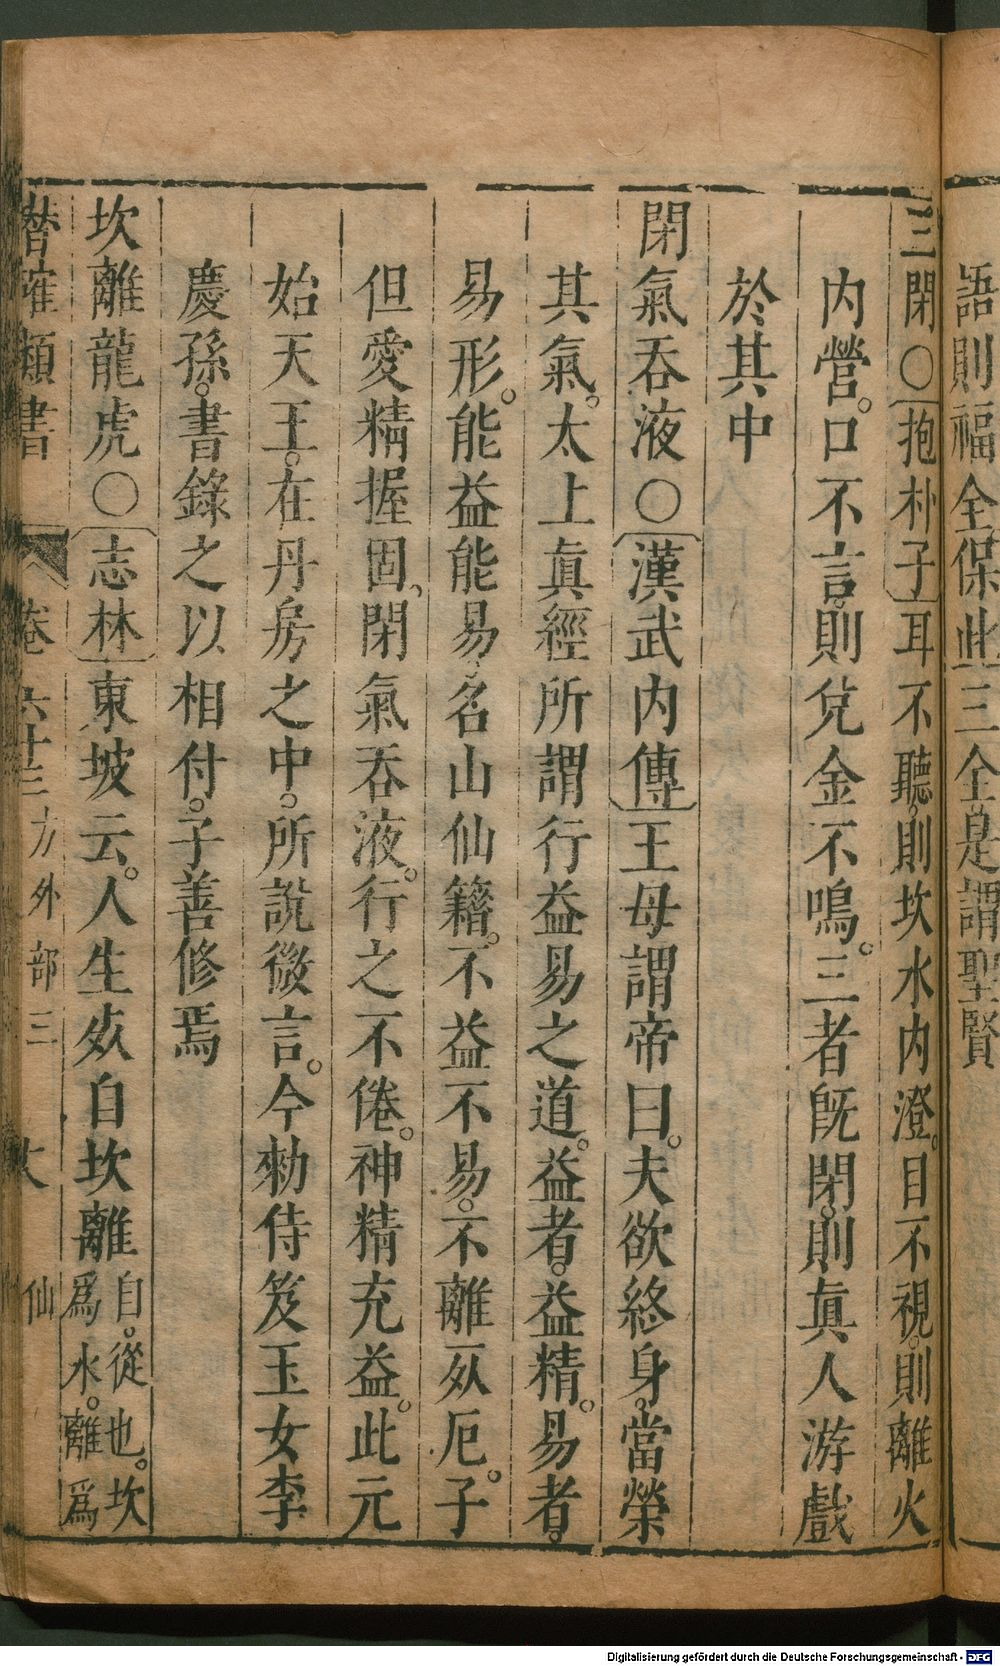 語則福全保此三全是謂聖賢
三閉○抱朴子耳不聽。則坎水内澄。目不視。則離火
内營。口不言。則兌金不鳴。三者旣閉。則眞人游戲
於其中
閉氣吞液○漢武内傳王母謂帝曰。夫欲終身。當榮
其氣。太上眞經所謂行益易之道。益者。益精。易者。
易形。能益能易、名山仙籍。不益不易。不離𣦸厄。子
但愛精握固、閉氣吞液。行之不倦。神精充益。此元
始天王。在丹房之中。所說微言。今勑侍笈玉女李
慶孫。書錄之以相付。子善修焉
坎離龍虎○志林東坡云。人生𣦸自坎離自。從也。坎
爲水。離爲
潛確類書 卷六十三方外部三 仙
Digitalisierung gefördert durch die Deutsche Forschungsgemeinschaft - DFG